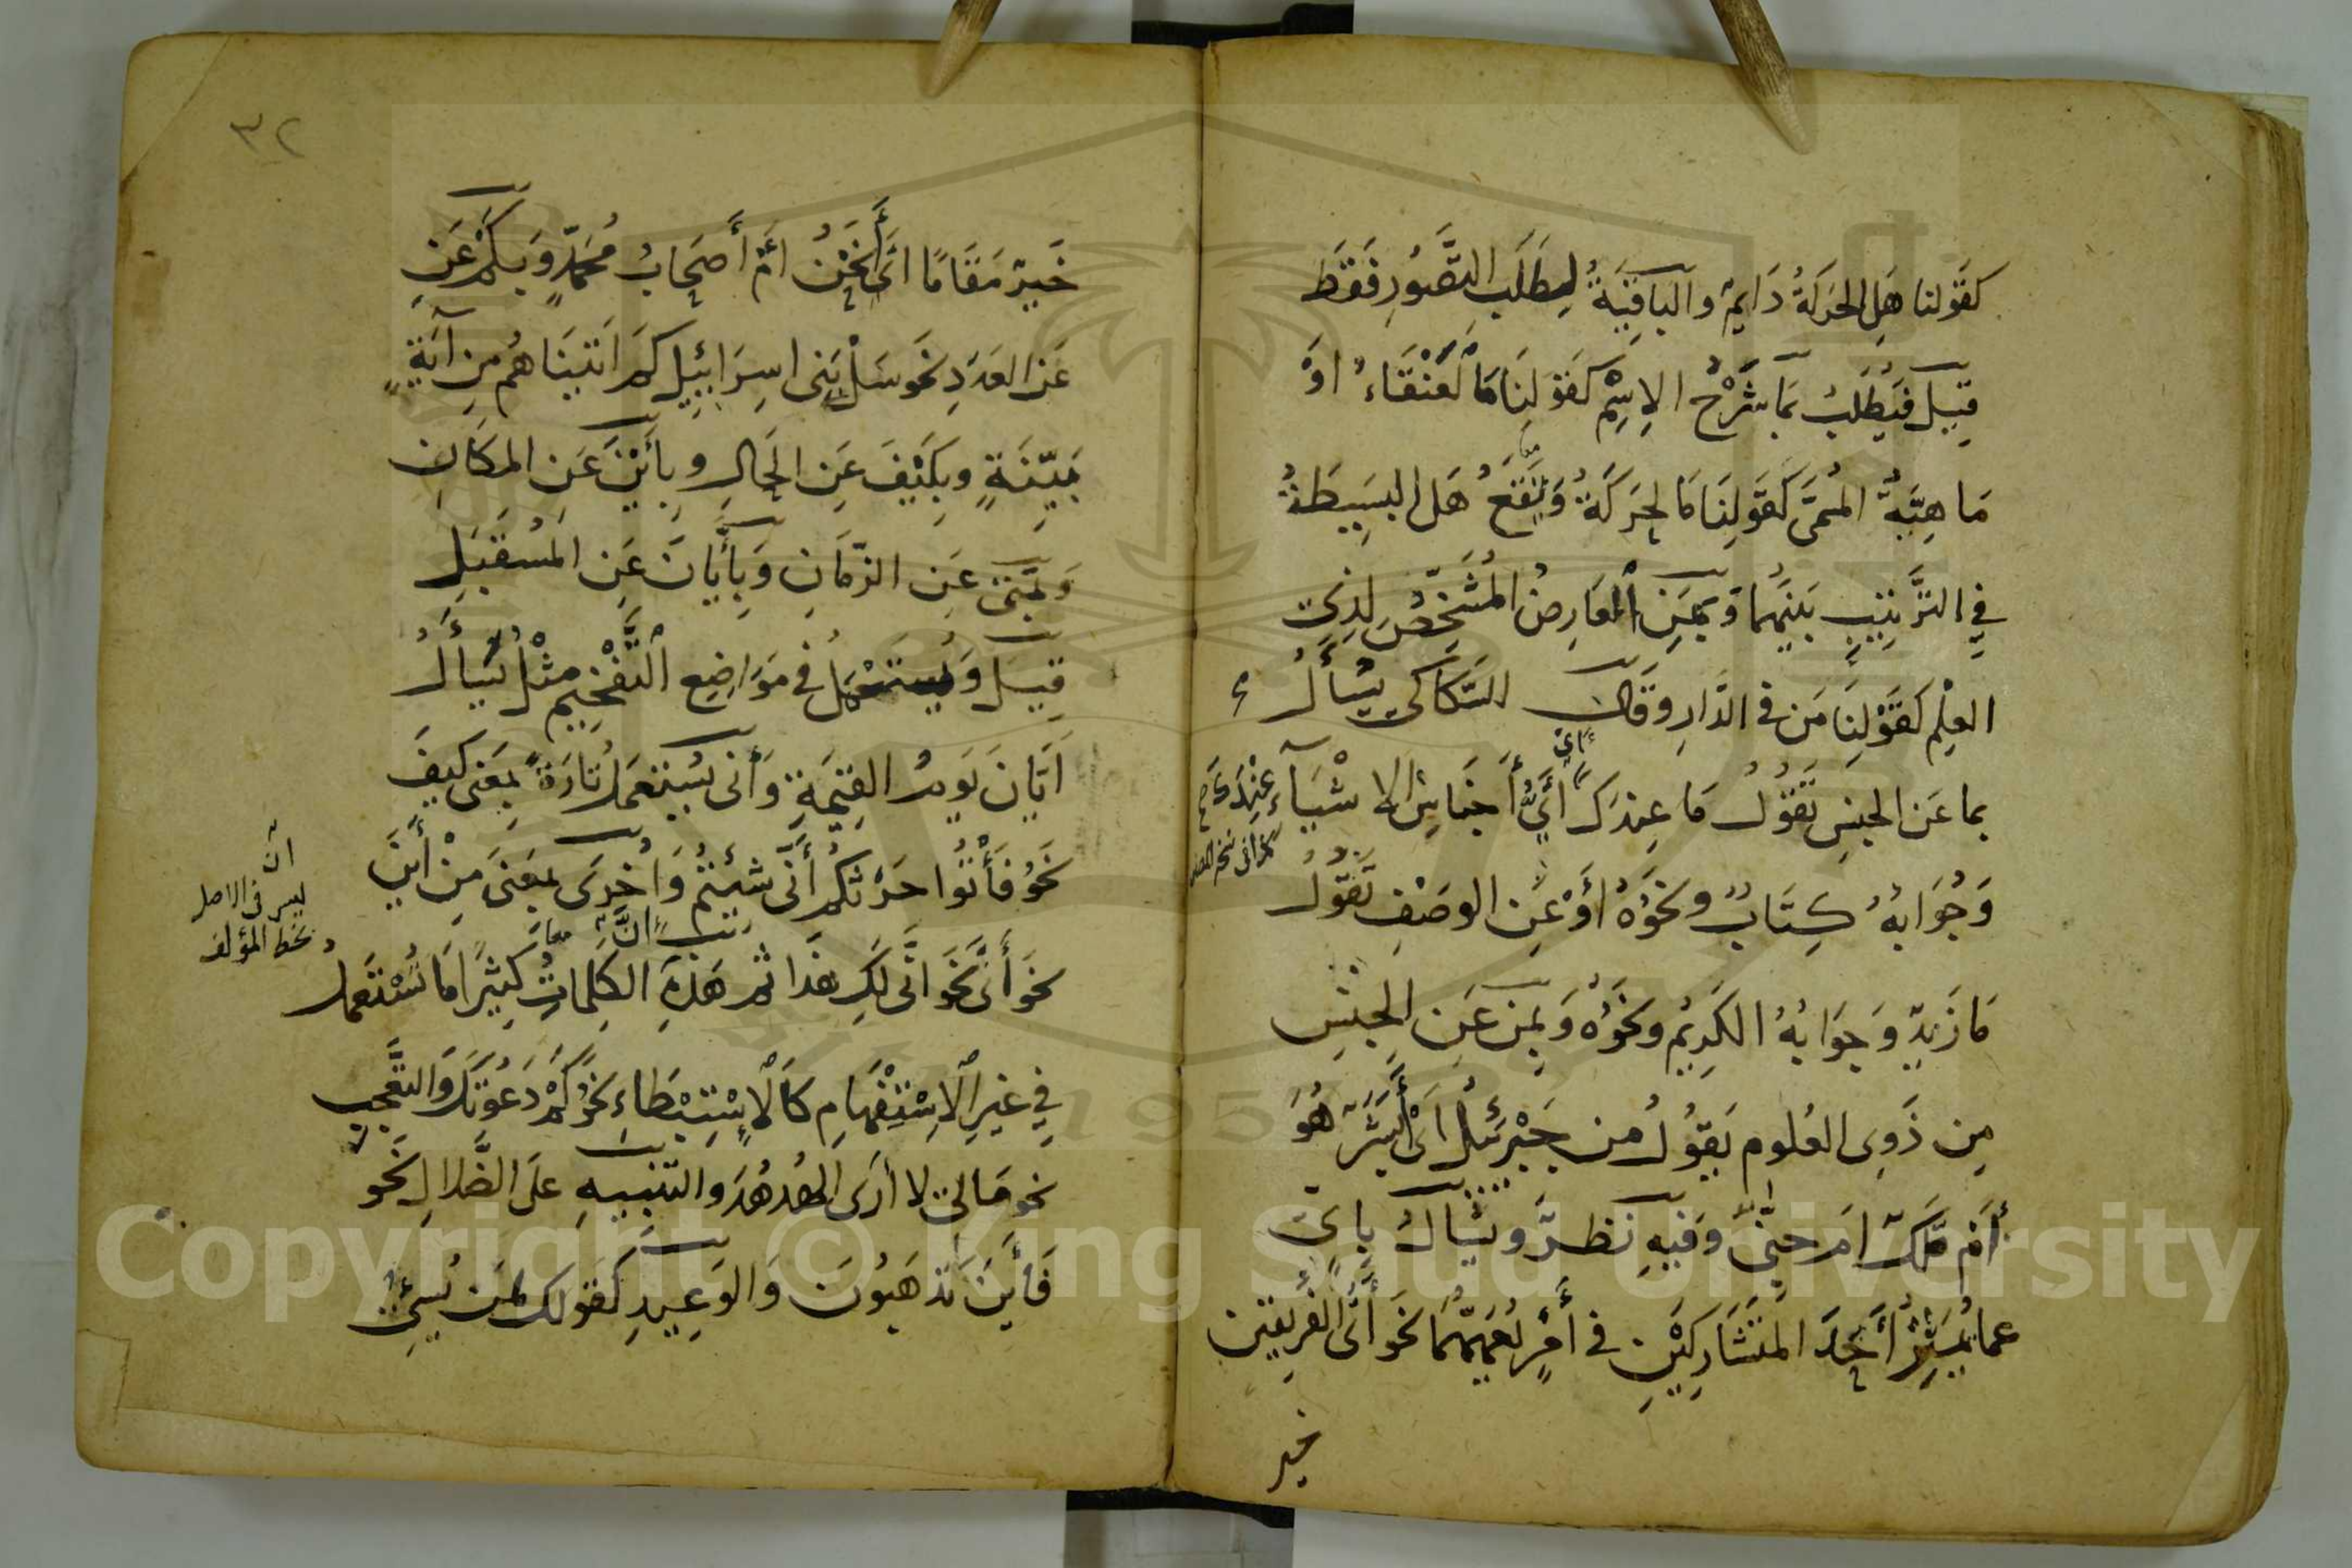 كَقَولنا هَلِ الحَرَكَةُ دَايِمٌ والبَاقِيَةُ لِطَلَبِ التَّصَوُّرِ فَقَط
قِيلَ فَيُطْلَبُ بِمَا شَرْحُ الاِسْمِ كَقَولِنَا مَا الْعَنْقَاءُ اَوْ
مَاهِيَّةُ المُسَمَّى كَقَولِنَا مَا الحَرَكَةُ وَيَقَعُ هَلِ البَسِيطَةُ
فِي التَّرْتِيبِ بَيْنَهُمَا وَبِمَنِ الْعَارِضُ المُشَخِّصُ لِذِي
العِلْمِ كَقَوْلِنَا مَن في الدَّارِ وَقَالَ السَّكَّاكِي يُسْأَلُ
بما عَنِ الجِنسِ تَقُولُ مَا عِندَكَ اَيْ أَيُّ أَجْنَاسِ الاشْيَآءِ عِنْدَكَ
وَجُوَابُهُ كِتَابٌ ونَحْوُهُ أَوْ عَنِ الوَصْفِ تَقُولُ
مَا زَيدٌ وَجَوَابُهُ الكَرِيمُ ونَحْوُهُ وَبِمَنْ عَنِ الجِنْسِ
مِن ذَوِى العُلوم يَقُولُ مَن جَبْرَئِيلُ اَىْ أَبَشَرٌ هُوَ
أَمْ مَلَكٌ اَم جِنِّيٌّ وَفِيهِ نَظَرٌ ويُسْأَلُ بِاَىٍّ
عما يُمَيِّزُ أَحَدَ المُتَشَارِكَيْنِ في أَمْرٍ يَعُمُّهُمَا نَحوَ أَىُّ الفَرِيقَيْنِ
خير
٣٢
خَيْرٌ مَقَامًا اَىْ أَنَحْنُ اَمْ أَصْحَابُ مُحَمَّدٍ وَبِكَمْ عَنِ
عَنِ العَدَدِ نَحوَ سَلْ بَنِى اسِرَائِيلَ كَم اَتَيْنَاهُم مِن آيَةٍ
بَيِّنَةٍ وبِكَيْفَ عَنِ الحَالِ وبِأَيْنَ عَنِ المَكَانِ
وَبِمَتَى عَنِ الزَّمَانِ وَبِأَيَّانَ عَنِ المُسْتَقْبَلِ
قِيلَ وَيُستَعْمَلُ فِي مَوَاضِعِ التَّفْخِيمِ مثْلُ يَسْأَلُ
اَيَّانَ يَومُ القِيمَةِ وَأَنَّى يُسْتَعمَلُ تَارَةً بِمَعنى كَيفَ
نَحْوُ فَأْتُوا حَرْثَكُمْ أَنَّى شِئْتُمْ وَاُخرَى بِمَعْنَى مِنْ أَيْنَ
نحوَ أَنَّى لَكِ هَذَا ثم هَذِهِ الكَلِمَاتُ كَثِيرًا مَا تُسْتَعمَلُ
فِي غَيرِ الاِسْتِفْهَامِ كَالاِسْتِبْطَاءِ نَحْوُ كَمْ دَعَوْتُكَ وَالتَّعَجُّبِ
نحو مَالِيَ لا أَرَى الهُدْهُدَ والتَّنبِيهِ عَلَى الضَّلالِ نَحوَ
فَأَيْنَ تَذهَبُونَ وَالوَعِيدِ كَقَولِكَ لِمَن يُسِئُ
انّ
ليس في الاصل
بخط المؤلف